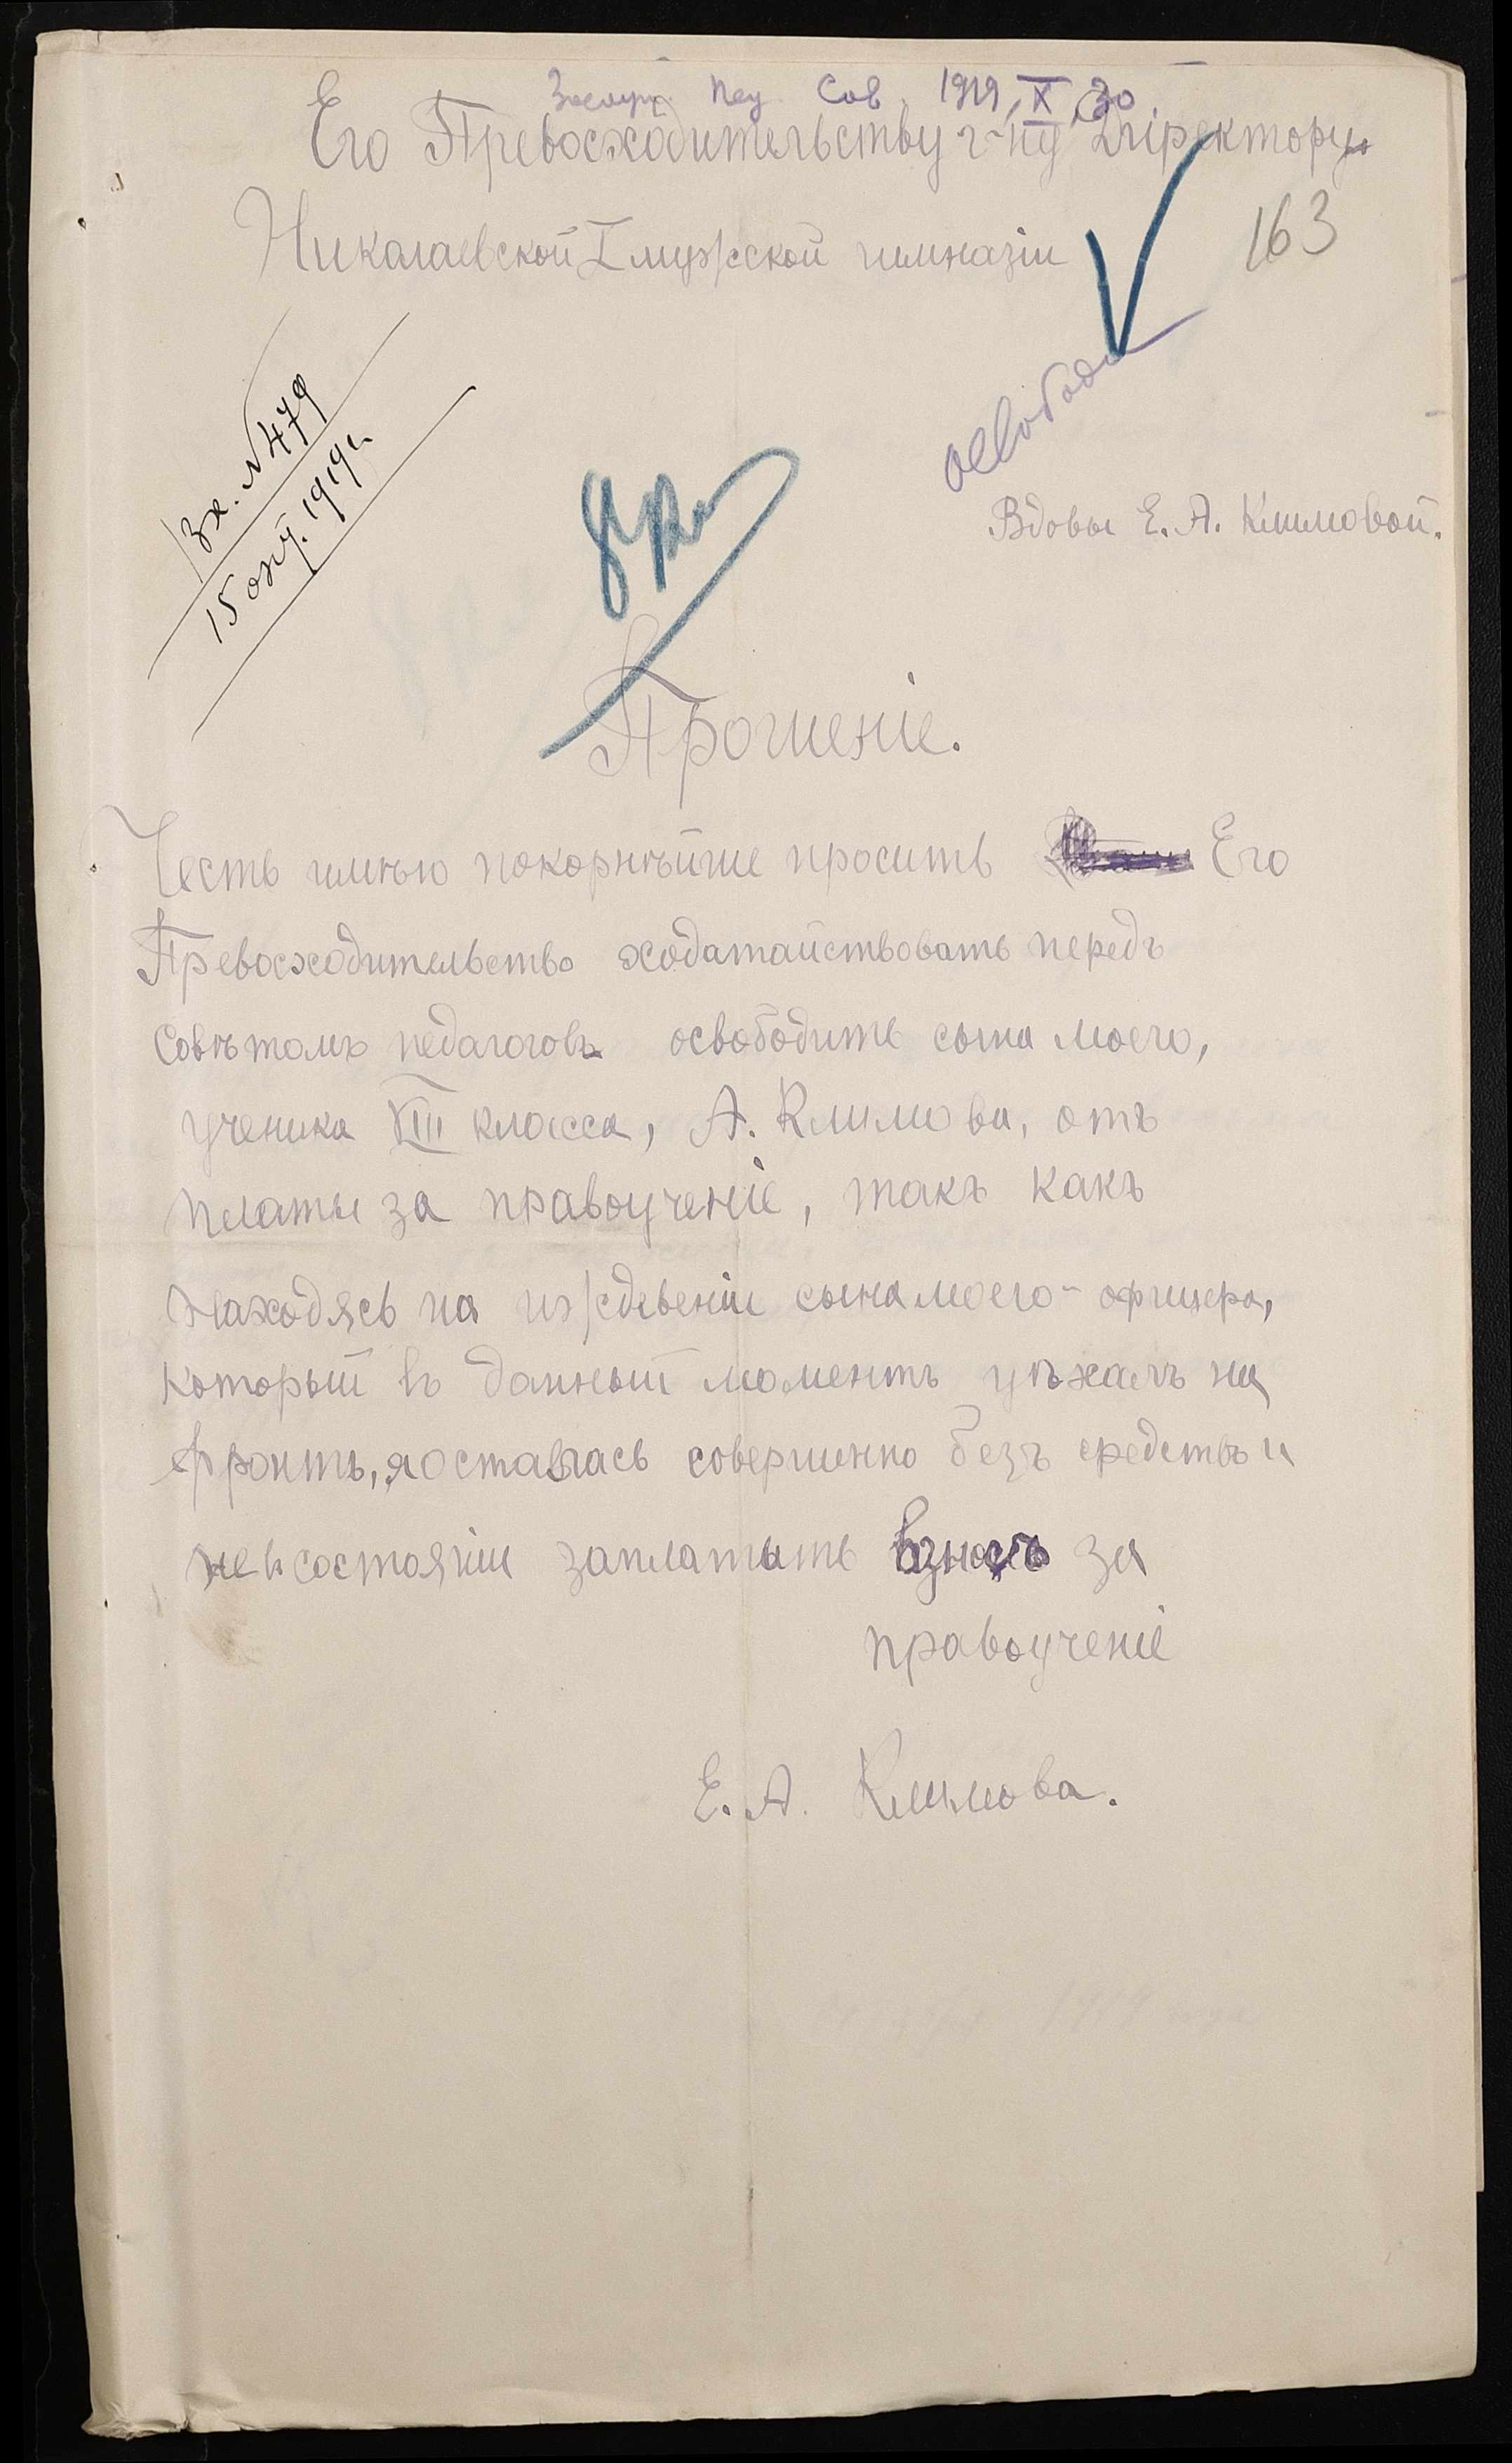 Пед. Сов. 1919, X, 30.
Его Превосходительству г-ну Директору
Николаевской I мужской гимназіи
163
Вх. № 479
15 окт. 1919 г.
освободи
Вдовы Е. А. Климовой.
Прошеніе.
Честь имѣю покорнѣйше просить Его
Превосходительство ходатайствовать передъ
Совѣтомъ педагоговъ освободить сына моего,
ученика VIII класса, А. Климова, отъ
платы за правоученіе, такъ какъ
находясь на иждивеніи сына моего - офицера,
который въ данный моментъ уѣхалъ на
фронтъ, я осталась совершенно безъ средствъ и
не въ состояніи заплатить взносъ за
правоученіе
Е. А. Климова.